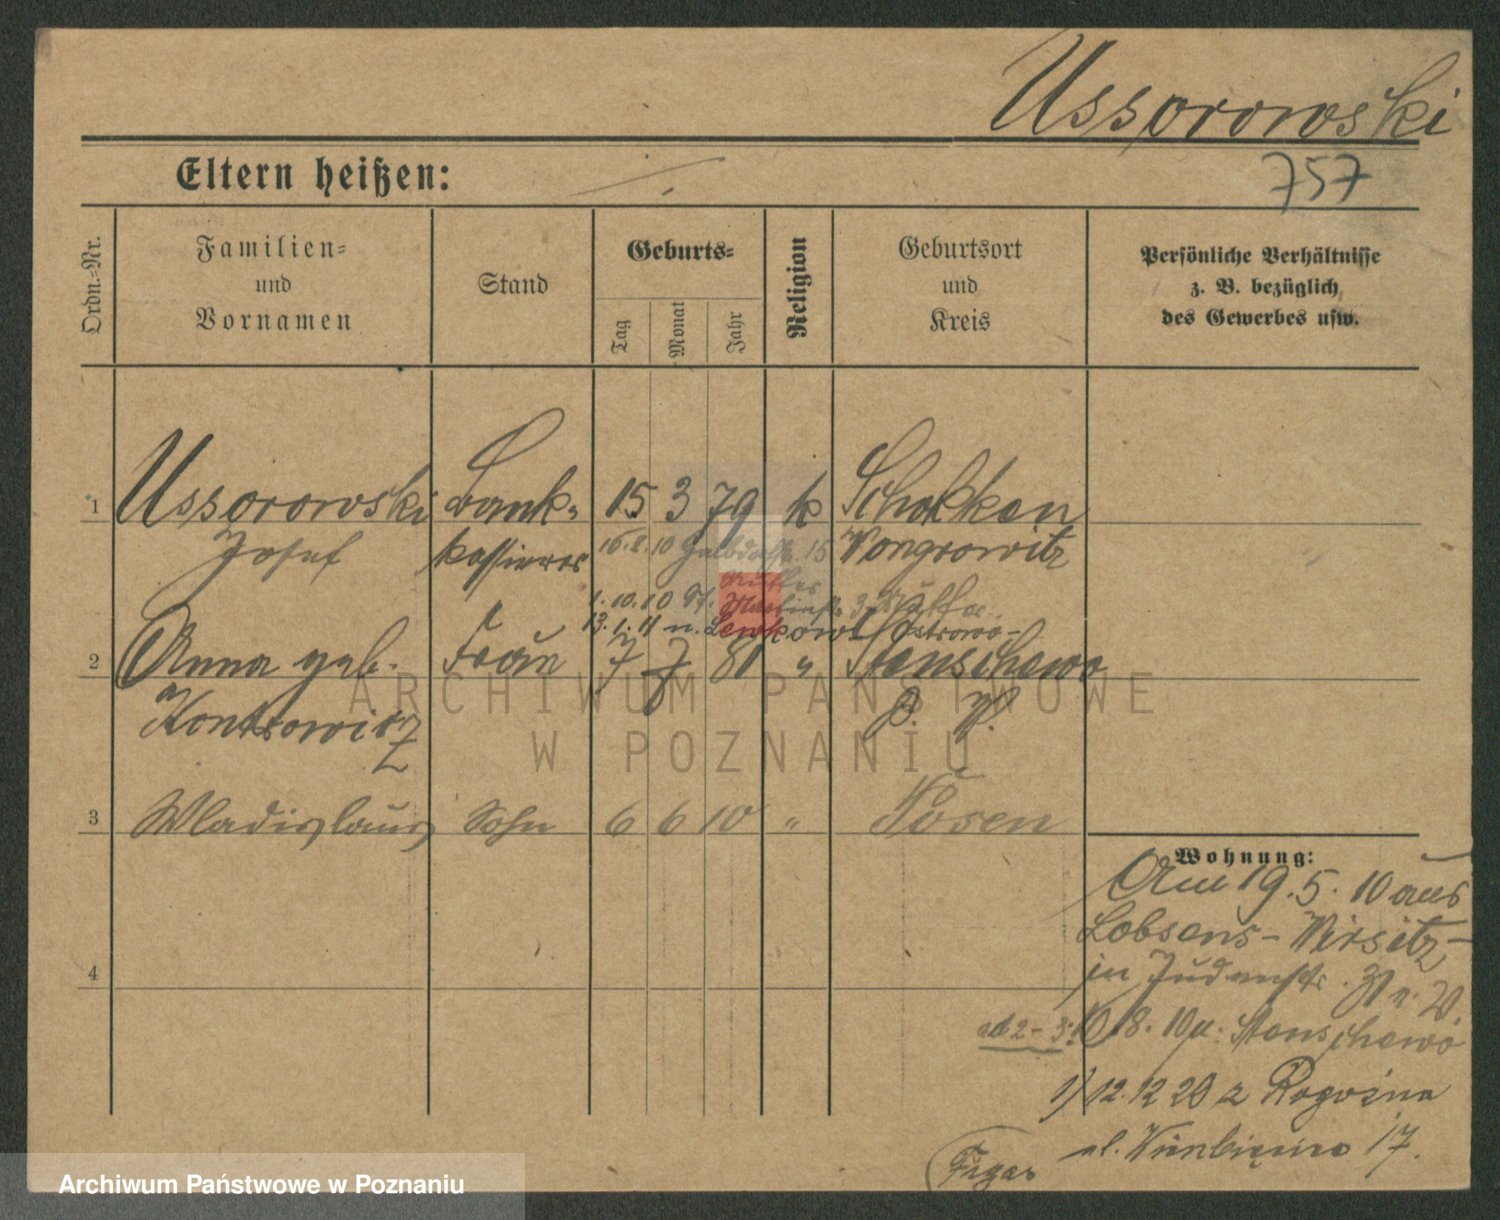 Ussorowski
Eltern heißen:
757
Ordn.-Nr.
Familien-
und
Vornamen
Stand
Geburts-
Tag
Monat
Jahr
Religion
Geburtsort
und
Kreis
Persönliche Verhältnisse
z. B. bezüglich
des Gewerbes usw.
1 Ussorowski Bank- 15 3 79 k Schokken
Josef kassierer Wongrowitz
16.8.10 15
1.10.10
13.1.11 n. Lewkowo Ostrowo-
2 Anna geb. Frau 7 7 81 " Stenschewo
P. W.
3 Wladislaus Sohn 6 6 10 " Posen
4
Wohnung:
Am 19.5.10 aus
Lobsens-Wirsitz-
in Judenstr.
ad 2-3: 18.10 n. Stenschewo
1) 12.12 20 z Rogoźna
ul. 17.
ARCHIWUM PAŃSTWOWE
W POZNANIU
Archiwum Państwowe w Poznaniu